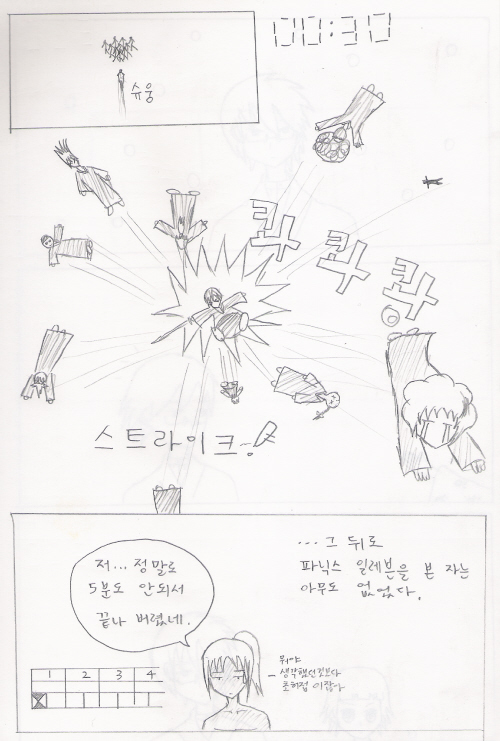 00:30
슈웅
콰
콰
쾅
스트라이크~!
...그 뒤로
파닉스 일레븐을 본 자는
아무도 없었다.
저...정말로
5분도 안되서
끝나 버렸네.
뭐야
생각했던것보다
초허접이잖아
1 2 3 4